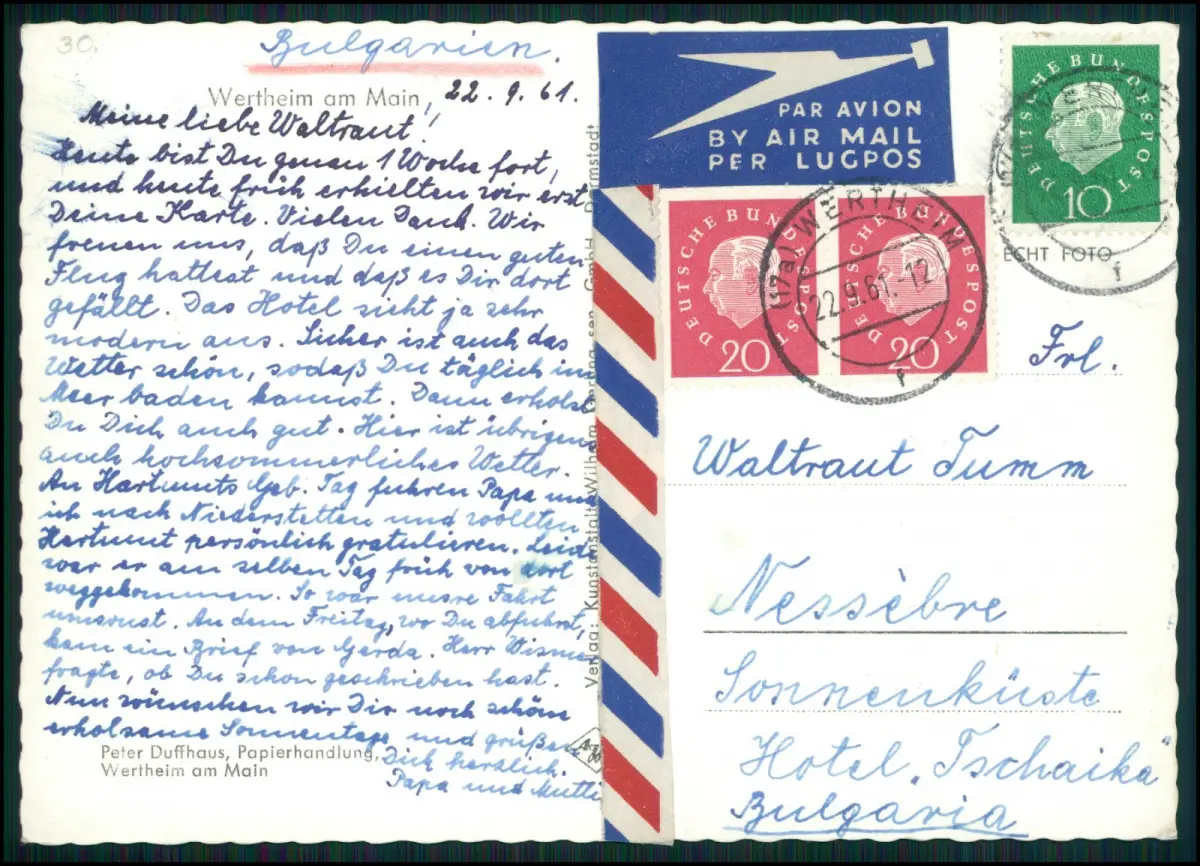 30.
Bulgarien.
Wertheim am Main, 22.9.61.
Meine liebe Waltraut!
Heute bist Du genau 1 Woche fort,
und heute früh erhielten wir erst
Deine Karte. Vielen Dank. Wir
freuen uns, daß Du einen guten
Flug hattest und daß es Dir dort
gefällt. Das Hotel sieht ja sehr
modern aus. Sicher ist auch das
Wetter schön, sodaß Du täglich im
Meer baden kannst. Dann erholst
Du Dich auch gut. Hier ist übrigens
auch hochsommerliches Wetter.
An Hartmuts Geb. Tag fuhren Papa und
ich nach Niederstetten und wollten
Hartmut persönlich gratulieren. Leider
war er am selben Tag früh von dort
weggekommen. So war unsre Fahrt
umsonst. An dem Freitag, wo Du abfuhrst,
kam ein Brief von Gerda. Herr
fragte, ob Du schon geschrieben hast.
Nun wünschen wir Dir noch schöne
erholsame Sonnentage und grüßen
Dich herzlich.
Papa und Mutti
Peter Duffhaus, Papierhandlung,
Wertheim am Main
Verlag: Kunstanstalt Wilhelm GmbH Darmstadt
PAR AVION
BY AIR MAIL
PER LUGPOS
DEUTSCHE BUNDESPOST
20
DEUTSCHE BUNDESPOST
20
DEUTSCHE BUNDESPOST
10
(17a) WERTHEIM
22.9.61.-12
f
f
ECHT FOTO
Frl.
Waltraut Tumm
Nessèbre
Sonnenküste
Hotel „Tschaika"
Bulgaria